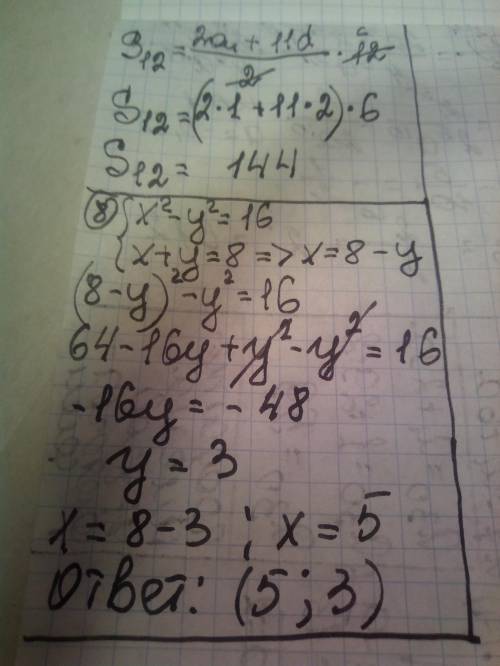 S₁₂ = (2a₁ + 11d)/2 · 12 6
S₁₂ = (2·1 + 11·2)·6
S₁₂ = 144
⑧ { x² - y² = 16
{ x + y = 8 => x = 8 - y
(8 - y)² - y² = 16
64 - 16y + y² - y² = 16
-16y = - 48
y = 3
x = 8 - 3 ; x = 5
Ответ: (5 ; 3)